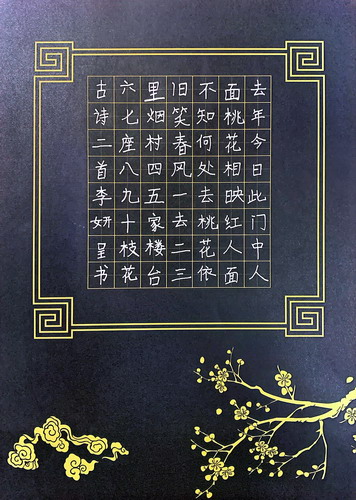 去年今日此门中人
面桃花相映红人面
不知何处去桃花依
旧笑春风一去二三
里烟村四五家楼台
六七座八九十枝花
古诗二首李妍呈书